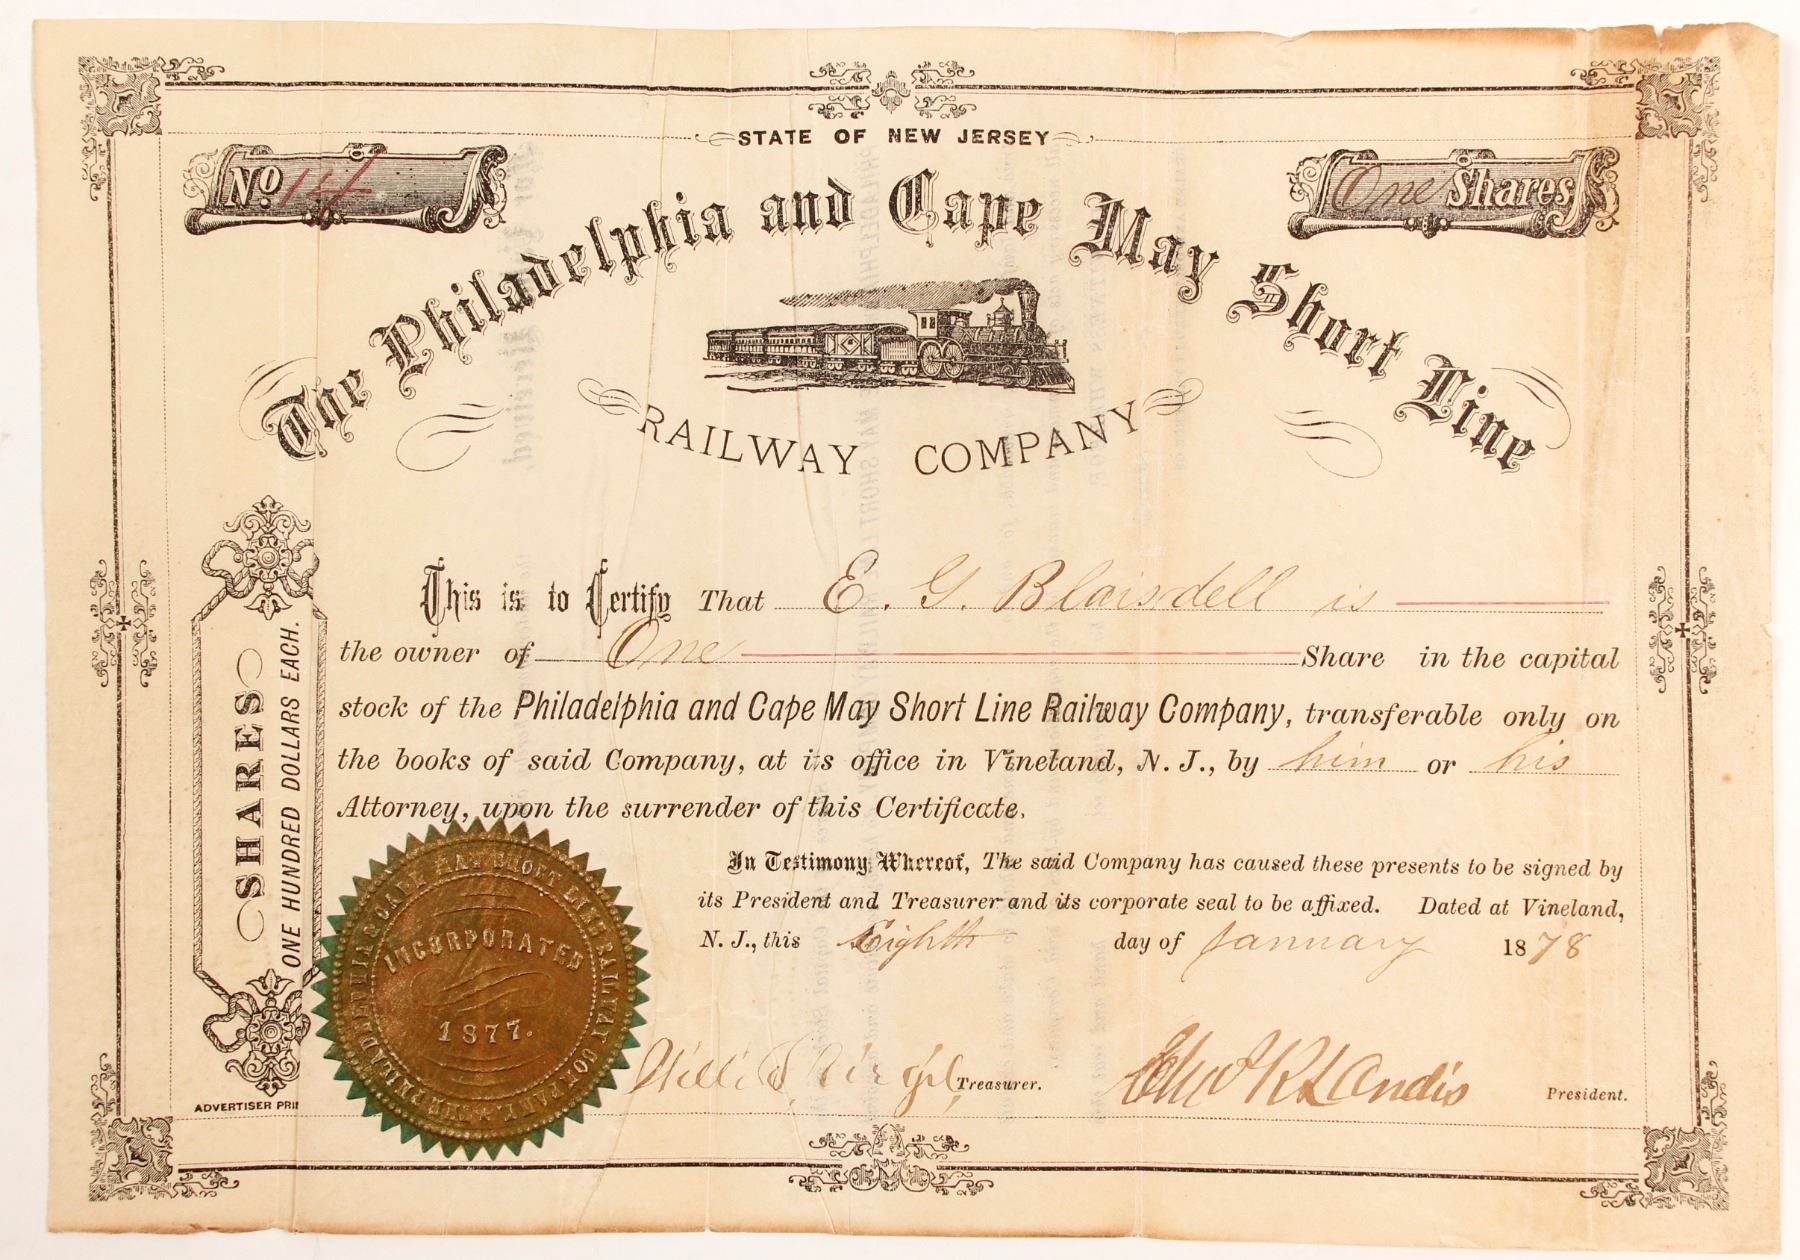 STATE OF NEW JERSEY
No. 14
One Shares
The Philadelphia and Cape May Short Line
RAILWAY COMPANY
SHARES
ONE HUNDRED DOLLARS EACH.
This is to Certify That E. G. Blaisdell is
the owner of One Share in the capital
stock of the Philadelphia and Cape May Short Line Railway Company, transferable only on
the books of said Company, at its office in Vineland, N. J., by him or his
Attorney, upon the surrender of this Certificate.
In Testimony Whereof, The said Company has caused these presents to be signed by
its President and Treasurer and its corporate seal to be affixed. Dated at Vineland,
N. J., this Eighth day of January 1878
THE PHILADELPHIA & CAPE MAY SHORT LINE RAILWAY COMPANY.
INCORPORATED
1877.
Treasurer.
Landis President.
ADVERTISER PRI